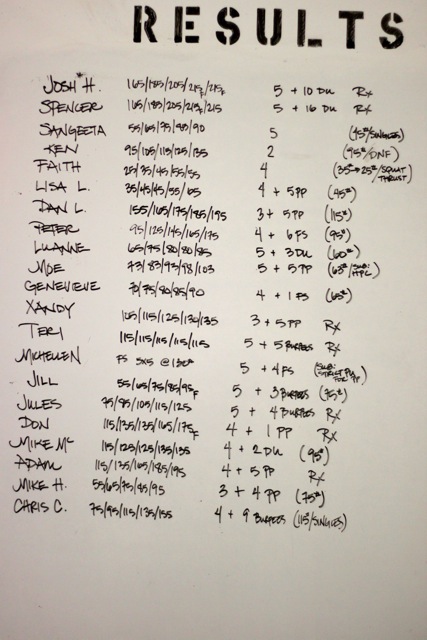 RESULTS
JOSH H. 165/185/205/215F/215F 5 + 10 DU Rx
SPENCER 165/185/205/215/215 5 + 16 DU Rx
SANGEETA 55/65/75/85/90 5 (45#/SINGLES)
KEN 95/105/115/125/135 2 (95#/DNF)
FAITH 25/35/45/55/55 4 (35#→25#/SQUAT THRUST)
LISA L. 35/45/45/55/65 4 + 5 PP (45#)
DAN L. 155/165/175/185/195 3 + 5 PP (115#)
PETER 95/125/145/165/175 4 + 6 FS (95#)
LUANNE 65/75/80/80/85 5 + 3 DU (60#)
MOE 73/83/93/98/103 5 + 5 PP (63#/SUB: HPC)
GENEVIEVE 70/75/80/85/90 4 + 1 FS (65#)
XANDY 105/115/125/130/135 3 + 5 PP Rx
TERI 115/115/115/115/115 5 + 5 BURPEES Rx
MICHELLEN FS 5x5 @ 5 + 4 FS (SUB: STRICT PU FOR PP)
JILL 55/65/75/85/95F 5 + 3 BURPEES (75#)
JULES 75/85/105/115/125 5 + 4 BURPEES Rx
DON 115/135/135/165/175F 4 + 1 PP Rx
MIKE Mc 115/125/125/135/135 4 + 2 DU (95#)
ADAM 115/135/165/185/195 4 + 5 PP Rx
MIKE H. 55/65/75/85/95 3 + 4 PP (75#)
CHRIS C. 75/95/115/135/155 4 + 9 BURPEES (115#/SINGLES)